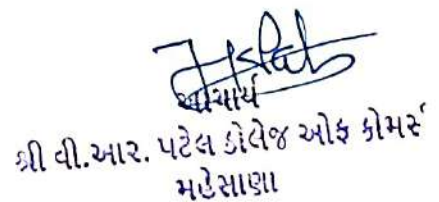 આચાર્ય
શ્રી વી.આર. પટેલ કોલેજ ઓફ કોમર્સ
મહેસાણા